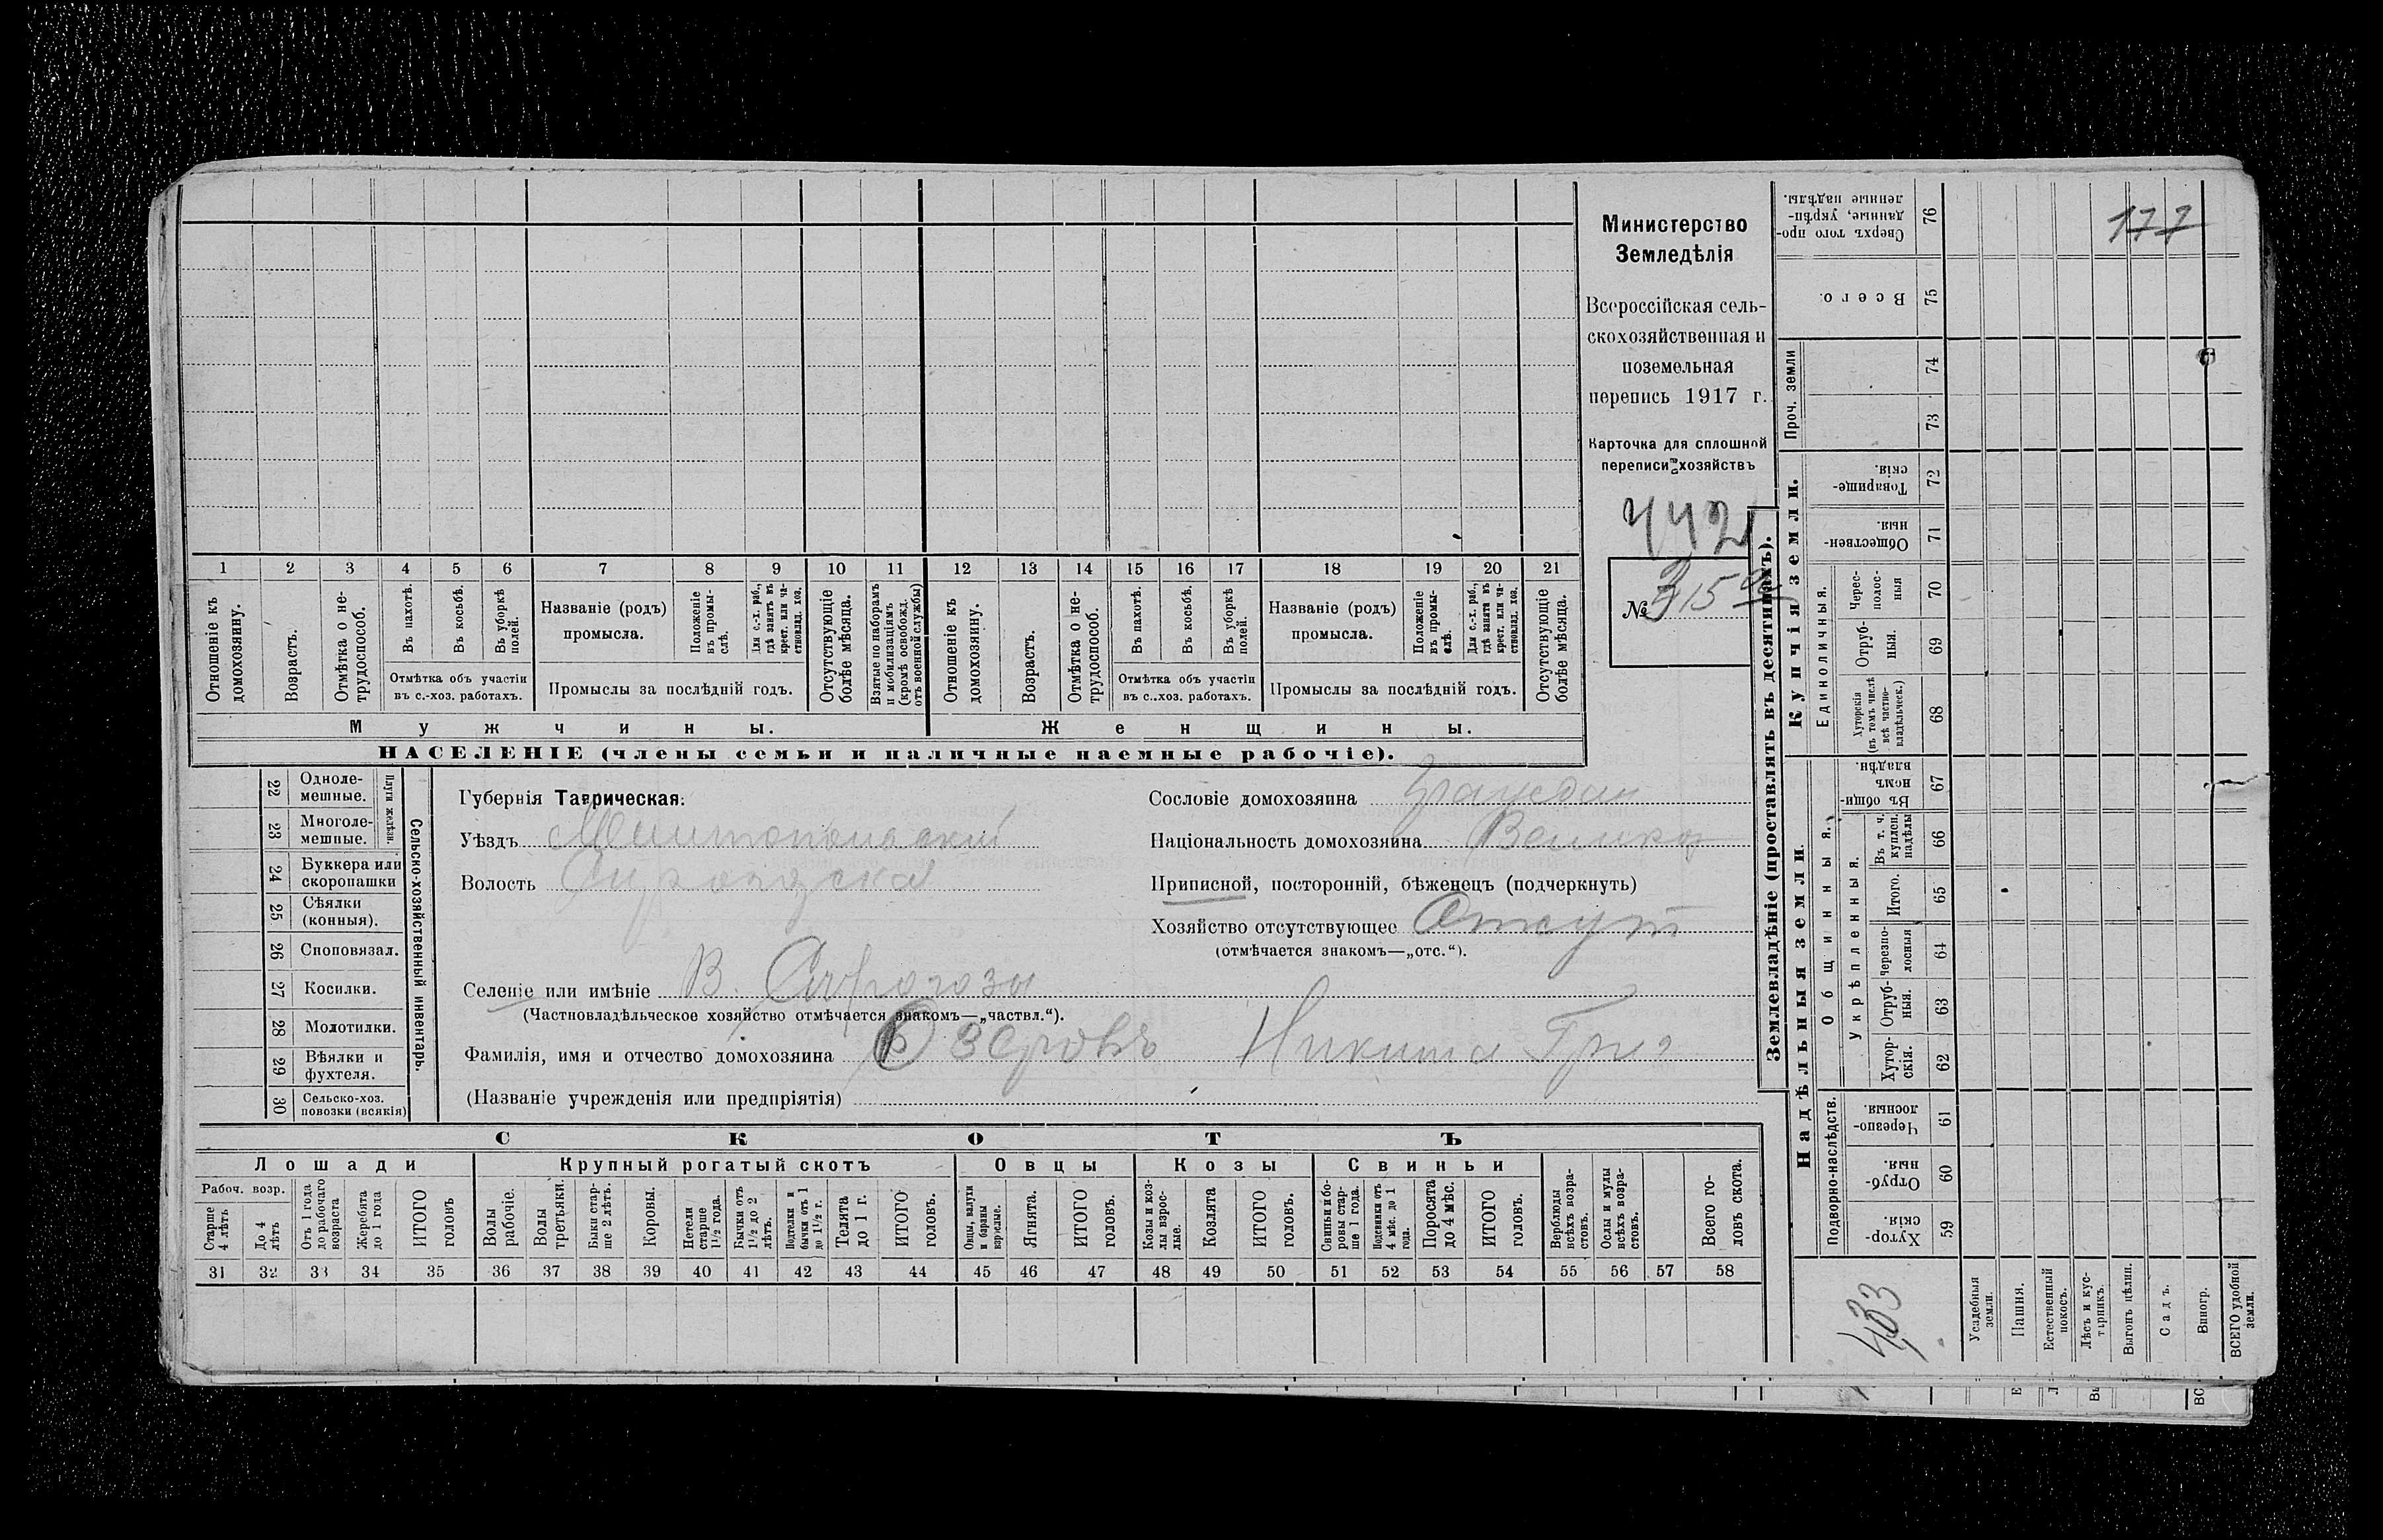 Министерство
Земледѣлія
Всероссійская сель-
скохозяйственная и
поземельная
перепись 1917 г.
Карточка для сплошной
переписи хозяйствъ
442
№ 315
177
1 2 3 4 5 6 7 8 9 10 11 12 13 14 15 16 17 18 19 20 21
Отношеніе къ домохозяину.
Возрастъ.
Отмѣтка о не-трудоспособ.
Въ пахотѣ.
Въ косьбѣ.
Въ уборкѣ полей.
Отмѣтка объ участіи
въ с.-хоз. работахъ.
Названіе (родъ)
промысла.
Положеніе въ промы-слѣ.
Для с.-х. раб., гдѣ занятъ въ крест. или ча-стновлад. хоз.
Промыслы за послѣдній годъ.
Отсутствующіе болѣе мѣсяца.
Взятые по наборамъ и мобилизаціямъ (кромѣ освобожд. отъ военной службы)
Отношеніе къ домохозяину.
Возрастъ.
Отмѣтка о не-трудоспособ.
Въ пахотѣ.
Въ косьбѣ.
Въ уборкѣ полей.
Отмѣтка объ участіи
въ с.-хоз. работахъ.
Названіе (родъ)
промысла.
Положеніе въ промы-слѣ.
Для с.-х. раб., гдѣ занята въ крест. или ча-стновлад. хоз.
Промыслы за послѣдній годъ.
Отсутствующіе болѣе мѣсяца.
Мужчины.
Женщины.
НАСЕЛЕНІЕ (члены семьи и наличные наемные рабочіе).
22 Одноле-мешные.
23 Многоле-мешные.
Плуги желѣзн.
24 Буккера или скоропашки
25 Сѣялки (конныя).
26 Сноповязал.
27 Косилки.
28 Молотилки.
29 Вѣялки и фухтеля.
30 Сельско-хоз. повозки (всякія)
Сельско-хозяйственный инвентарь.
Губернія Таврическая.
Уѣздъ Мелитопольскій
Волость
Селеніе или имѣніе В. Сирогозы
(Частновладѣльческое хозяйство отмѣчается знакомъ—„частвл.“).
Фамилія, имя и отчество домохозяина Озеровъ Никита Григ
(Названіе учрежденія или предпріятія)
Сословіе домохозяина Граждан
Національность домохозяина Велико
Приписной, посторонній, бѣженецъ (подчеркнуть)
Хозяйство отсутствующее Отсут
(отмѣчается знакомъ—„отс.“).
СКОТЪ
Лошади
Крупный рогатый скотъ
Овцы
Козы
Свиньи
Рабоч. возр.
Старше 4 лѣтъ
До 4 лѣтъ
Отъ 1 года до рабочаго возраста
Жеребята до 1 года
ИТОГО головъ
Волы рабочіе.
Волы третьяки.
Быки стар-ше 2 лѣтъ.
Коровы.
Нетели старше 1½ года.
Бычки отъ 1½ до 2 лѣтъ.
Подтелки и бычки отъ 1 до 1½ г.
Телята до 1 г.
ИТОГО головъ.
Овцы, валухи и бараны взрослые.
Ягнята.
ИТОГО головъ.
Козы и коз-лы взрос-лые.
Козлята
ИТОГО головъ.
Свиньи и бо-ровы стар-ше 1 года.
Подсвинки отъ 4 мѣс. до 1 года.
Поросята до 4 мѣс.
ИТОГО головъ.
Верблюды всѣхъ возра-стовъ.
Ослы и мулы всѣхъ возра-стовъ.
Всего го-ловъ скота.
31 32 33 34 35 36 37 38 39 40 41 42 43 44 45 46 47 48 49 50 51 52 53 54 55 56 57 58
Землевладѣніе (проставлять въ десятинахъ).
Купчія земли.
Надѣльныя земли
Сверхъ того про-данные, укрѣп-ленные надѣлы. 76
Всего. 75
Проч. земли
74
73
Товарище-скія. 72
Обществен-ныя. 71
Единоличныя.
Черес-полос-ныя 70
Отруб-ныя. 69
Хуторскія (въ томъ числѣ всѣ частно-владѣльческ.) 68
Общинныя.
Въ общи-номъ владѣн. 67
Укрѣпленныя.
Въ т. ч. куплен. надѣлы 66
Итого. 65
Черезпо-лосныя 64
Отруб-ныя. 63
Хутор-скія. 62
Подворно-наслѣдств.
Черезпо-лосныя. 61
Отруб-ныя. 60
Хутор-скія. 59
433
Усадебныя земли.
Пашня.
Естественный покосъ.
Лѣсъ и кус-тарникъ.
Выгонъ цѣлин.
Садъ.
Виногр.
ВСЕГО удобной земли.